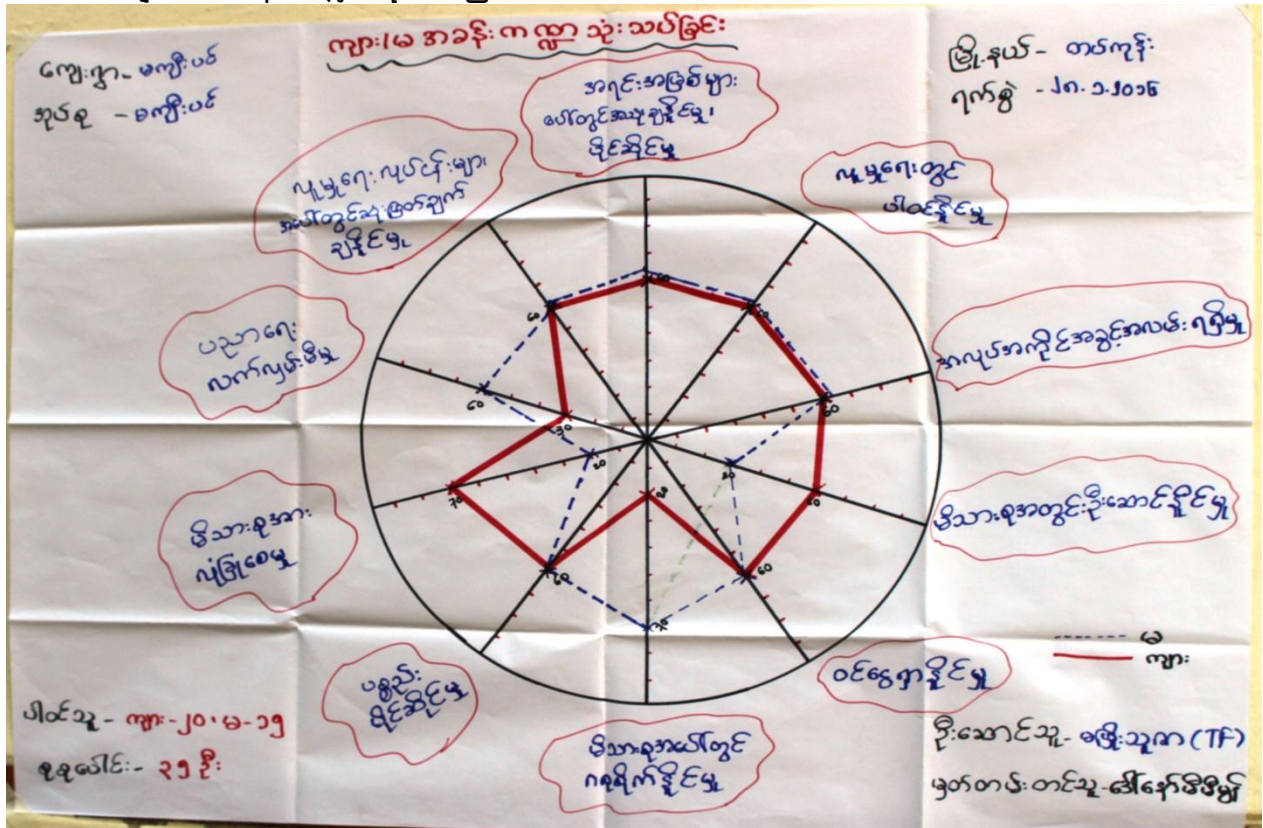 ကျား/မ အခန်းကဏ္ဍ သုံးသပ်ခြင်း
ကျေးရွာ - မကျီးပင်
အုပ်စု - မကျီးပင်
မြို့နယ် - တပ်ကုန်း
ရက်စွဲ -
အရင်းအမြစ်များ
ပေါ်တွင်အသုံးချနိုင်မှု၊
ပိုင်ဆိုင်မှု
လူမှုရေးတွင်
ပါဝင်နိုင်မှု
အလုပ်အကိုင်အခွင့်အလမ်းရရှိမှု
မိသားစုအတွင်းဦးဆောင်နိုင်မှု
ဝင်ငွေရှာနိုင်မှု
မိသားစုအပေါ်တွင်
ဂရုစိုက်နိုင်မှု
ပစ္စည်း
ပိုင်ဆိုင်မှု
မိသားစုအား
လုံခြုံစေမှု
ပညာရေး
လက်လှမ်းမီမှု
လူမှုရေးလုပ်ငန်းများ
အပေါ်တွင်ဆုံးဖြတ်ချက်
ချနိုင်မှု
60
60
60
30
70
60
70
60
60
မ
ကျား
ပါဝင်သူ - ကျား-၂၀၊ မ-၁၅
စုစုပေါင်း - ၃၅ ဦး
ဦးဆောင်သူ - မဖြိုးသူဇာ (TF)
မှတ်တမ်းတင်သူ -